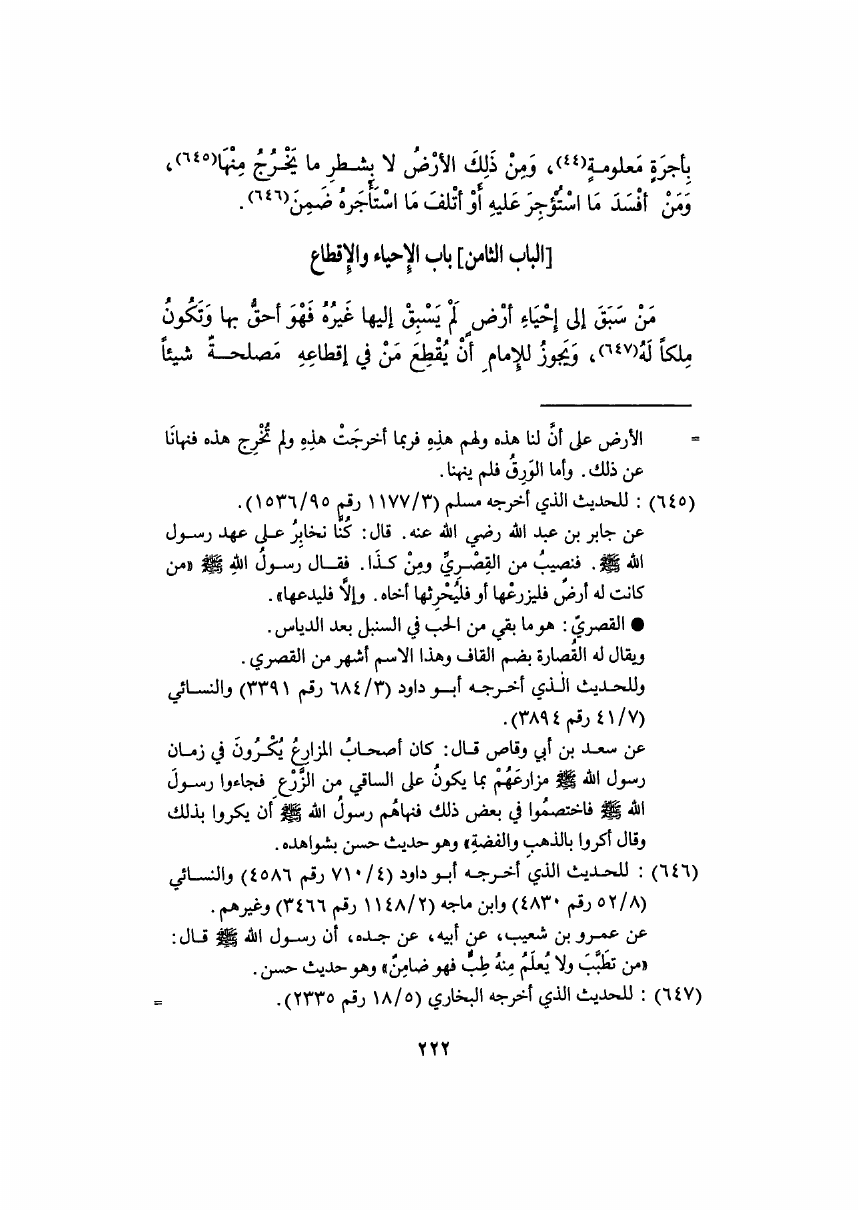 بِأجرَةٍ مَعلومةٍ(٤٤)، وَمِنْ ذَلِكَ الأرْضُ لا بِشطرِ ما يَخْرُجُ مِنْهَا(٦٤٥)،
وَمَنْ أفْسَدَ مَا اسْتُؤْجِرَ عَليهِ أَوْ أتْلفَ مَا اسْتَأْجَرهُ ضَمِنَ(٦٤٦).
[الباب الثامن] باب الإحياء والإقطاع
مَنْ سَبَقَ إلى إحْيَاءِ أرْضٍ لَمْ يَسْبِقْ إليها غَيْرُهُ فَهْوَ أحقُّ بها وَتَكُونُ
مِلكاً لَهُ(٦٤٧)، وَيَجوزُ للإمامِ أَنْ يُقْطِعَ مَنْ في إقطاعِهِ مَصلحةٌ شيئاً
= الأرض على أنَّ لنا هذه ولهم هذِهِ فربما أخرجَتْ هذِهِ ولم تُخْرِج هذه فنهانَا
عن ذلك. وأما الوَرِقُ فلم ينهنا.
(٦٤٥) : للحديث الذي أخرجه مسلم (٣/ ١١٧٧ رقم ٩٥/ ١٥٣٦).
عن جابر بن عبد الله رضي الله عنه. قال: كُنَّا نخابِرُ على عهد رسول
الله ﷺ. فنصيبُ من القِصْرِيِّ ومِنْ كذَا. فقال رسولُ اللهِ ﷺ «من
كانت له أرضٌ فليزرعْها أو فليُحْرِثها أخاه. وإلَّا فليدعها».
● القصريّ : هو ما بقي من الحب في السنبل بعد الدياس.
ويقال له القُصارة بضم القاف وهذا الاسم أشهر من القصري.
وللحديث الذي أخرجه أبو داود (٣/ ٦٨٤ رقم ٣٣٩١) والنسائي
(٧/ ٤١ رقم ٣٨٩٤).
عن سعد بن أبي وقاص قال: كان أصحابُ المزارعُ يُكْرُونَ في زمان
رسول الله ﷺ مزارعَهُمْ بما يكونُ على الساقي من الزَّرْعِ فجاءوا رسولَ
الله ﷺ فاختصمُوا في بعض ذلك فنهاهُم رسولُ الله ﷺ أن يكروا بذلك
وقال أكروا بالذهبِ والفضةِ» وهو حديث حسن بشواهده.
(٦٤٦) : للحديث الذي أخرجه أبو داود (٤/ ٧١٠ رقم ٤٥٨٦) والنسائي
(٨/ ٥٢ رقم ٤٨٣٠) وابن ماجه (٢/ ١١٤٨ رقم ٣٤٦٦) وغيرهم.
عن عمرو بن شعيب، عن أبيه، عن جده، أن رسول الله ﷺ قال:
«من تطَبَّبَ ولا يُعلَمُ مِنهُ طِبٌّ فهو ضامِنٌ» وهو حديث حسن.
(٦٤٧) : للحديث الذي أخرجه البخاري (٥/ ١٨ رقم ٢٣٣٥). =
٢٢٢